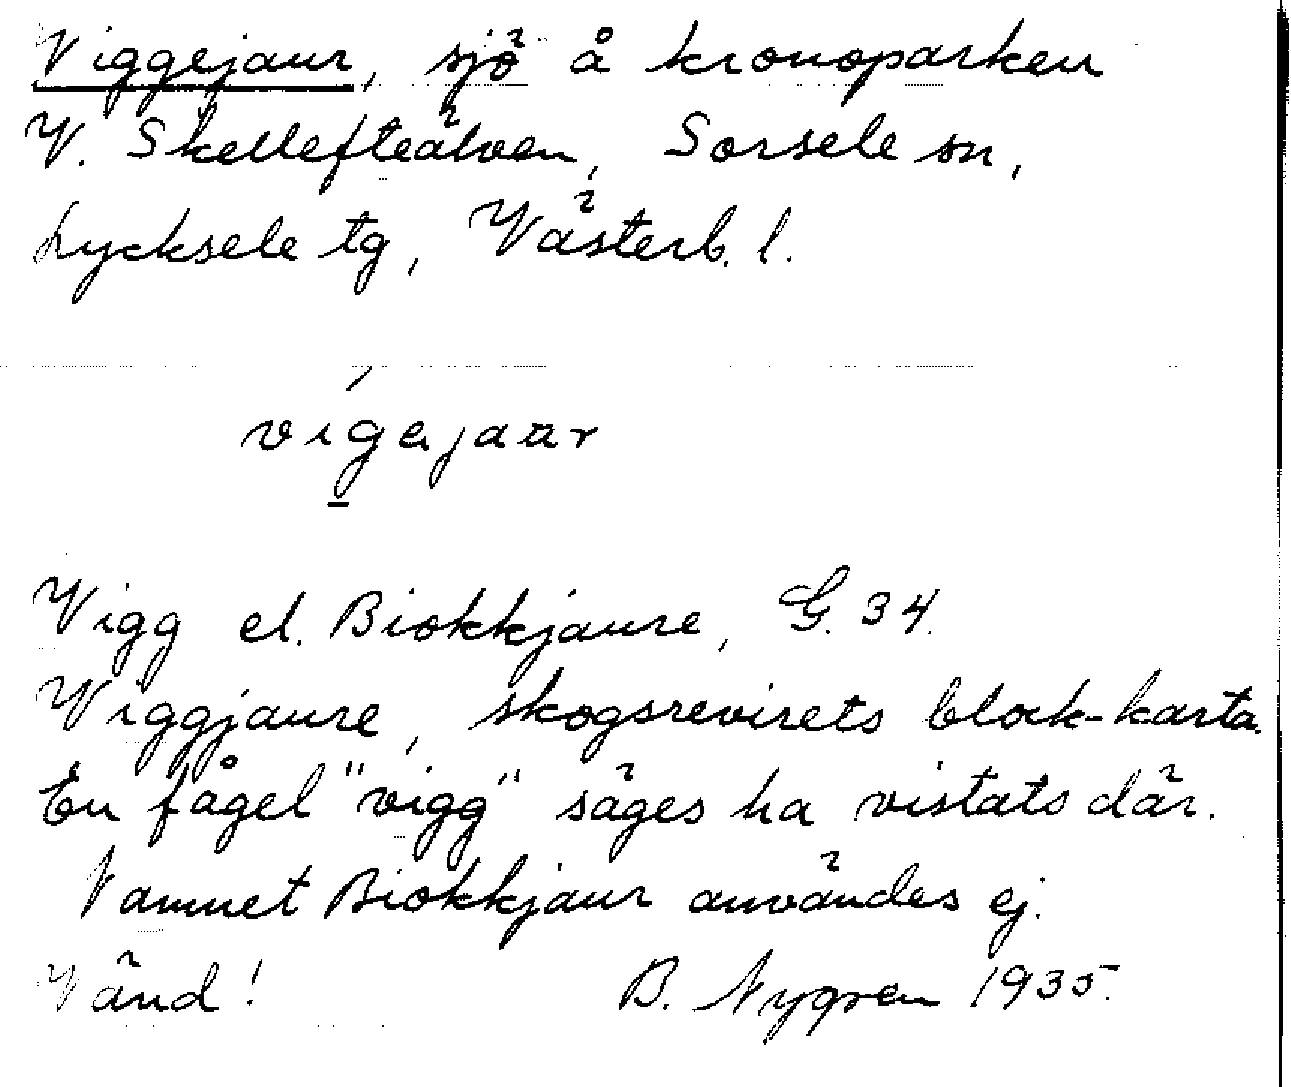 Viggejaur, sjö å kronoparken
V. Skellefteälven, Sorsele sn,
Lycksele tg, Västerb. l.
vigejaur
Vigg el. Biokkjaure, G. 34.
Viggjaure, skogsrevirets block-karta.
En fågel "vigg" säges ha vistats där.
Namnet Biokkjaur användes ej.
Vänd! B. Nygren 1935.